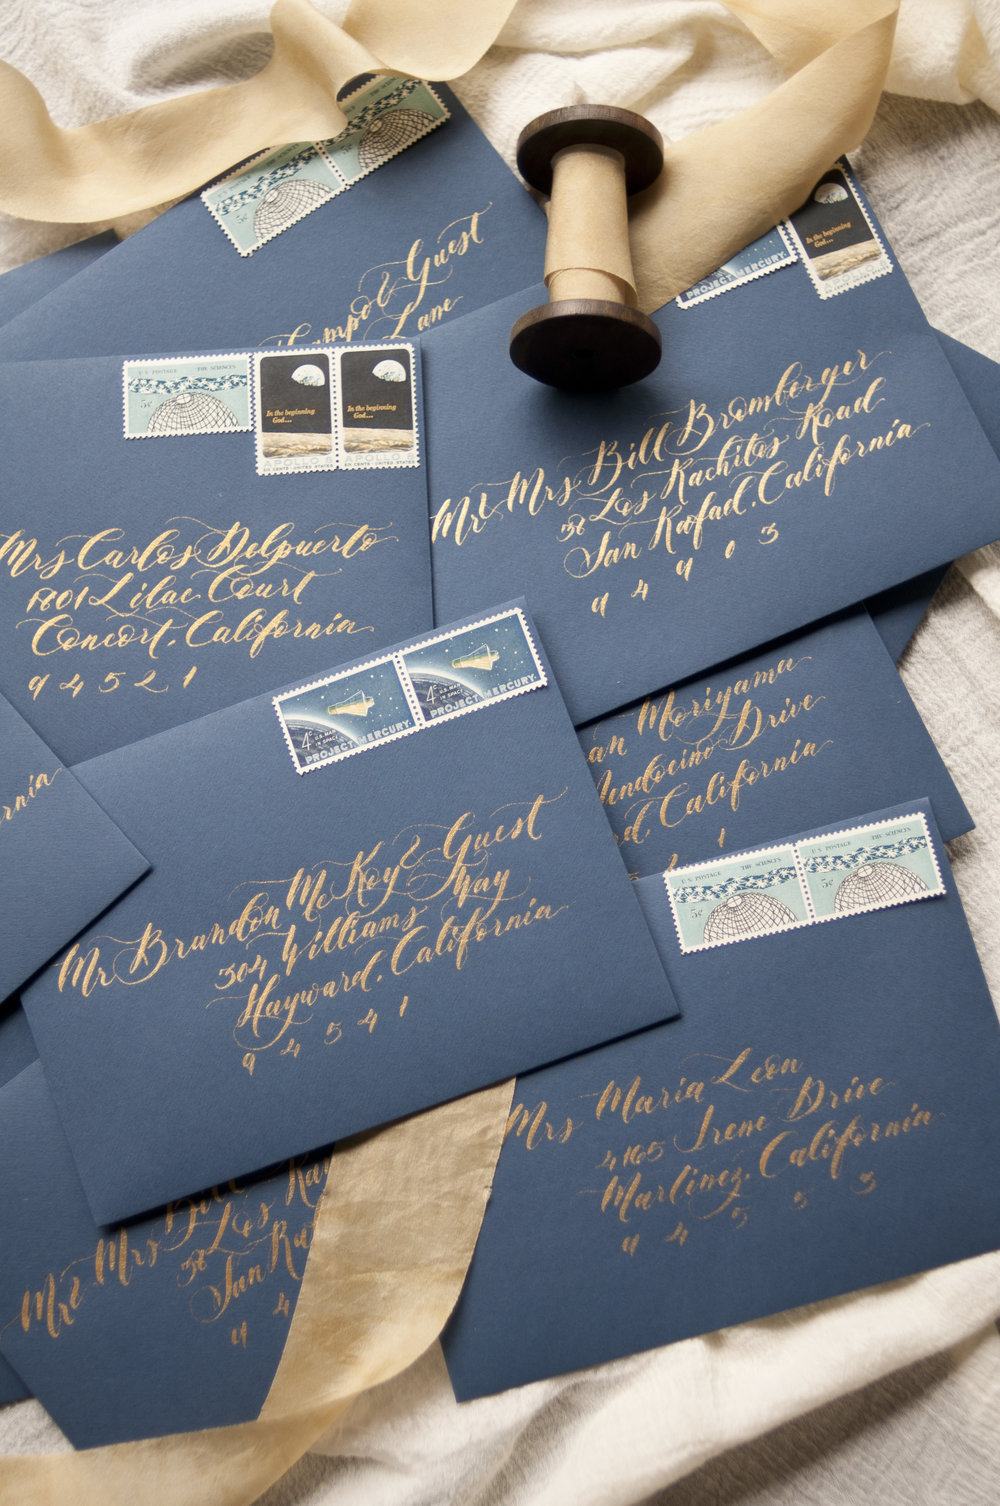 Guest
Lane
PROJECT MERCURY
In the beginning
God...
APOLLO 8
U.S. POSTAGE THE SCIENCES
5c
In the beginning
God...
APOLLO 8
SIX CENTS · UNITED STATES
In the beginning
God...
APOLLO 8
SIX CENTS · UNITED STATES
Mr & Mrs Bill Bromberger
38 Los Rachitos Road
San Rafael, California
9 4 9 0 3
Mrs Carlos Delpuerto
1801 Lilac Court
Concort, California
9 4 5 2 1
4c
U.S. MAN
IN SPACE
PROJECT MERCURY
4c
U.S. MAN
IN SPACE
PROJECT MERCURY
Moriyama
Mendocino Drive
California
Mr Brandon McKoy & Guest
304 Williams Way
Hayward, California
9 4 5 4 1
U.S. POSTAGE THE SCIENCES
5c
U.S. POSTAGE THE SCIENCES
5c
Mrs Maria Leon
4165 Irene Drive
Martinez, California
9 4 5 5 3
Mr & Mrs Bill
38 Los
San
9 4